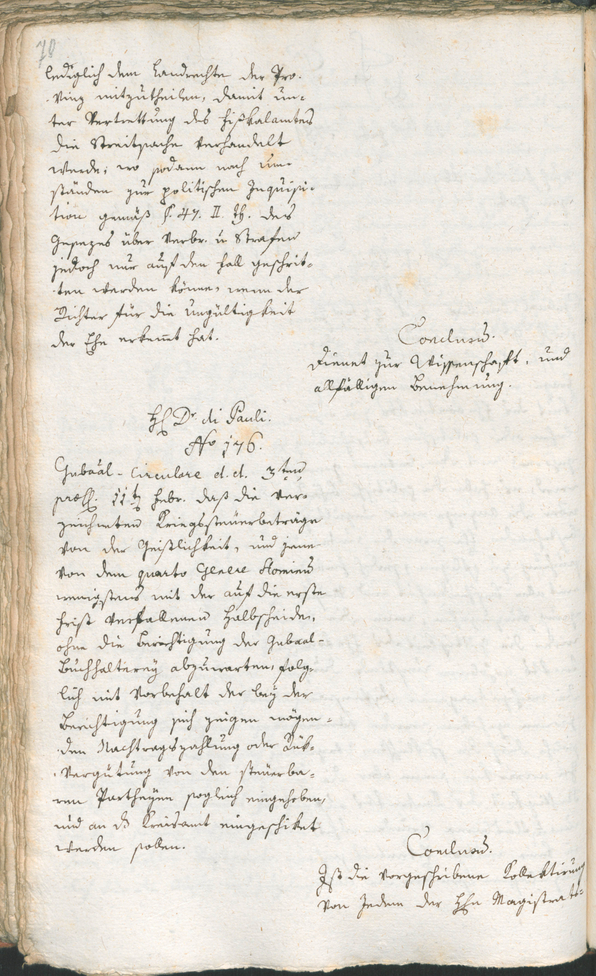 78
lediglich dem Landrechte der Pro-
vinz mitzutheilen, damit un-
ter Vertrettung des Fißkalamtes
die Streitsache verhandelt
werde; wo sodann nach Um-
ständen zur politischen Inquisi-
tion gemäß §. 47. II. Th. des
Gesezes über Verbr. u Strafen
jedoch nur auf den Fall geschrit-
ten werden könne, wenn der
Richter für die Ungültigkeit
der Ehe erkennt hat.
Conclusum.
Dienet zur Wissenschaft, und
allfälligen Benehmung.
H. Dr di Pauli.
No 176.
Gubaal-Circulare d. d. 3ten
praes. 11t Febr. daß die ver-
zeichneten Kriegssteuerbeträge
von der Geistlichkeit, und jene
von dem quarto Genere Hominum
wenigstens mit der auf die erste
Frist verfallenen Halbscheide,
ohne die Berichtigung der Gubaal-
Buchhalterey abzuwarten, folg-
lich mit Vorbehalt der bey der
Berichtigung sich zeigen mögen-
den Nachtragszahlung oder Rük-
vergütung von den steuerba-
ren Partheyen sogleich eingehoben,
und an das Kreisamt eingeschiket
werden sollen.
Conclusum.
Ist die vorgeschriebene Kollektirung
von Jedem der Hhn Magistrats-